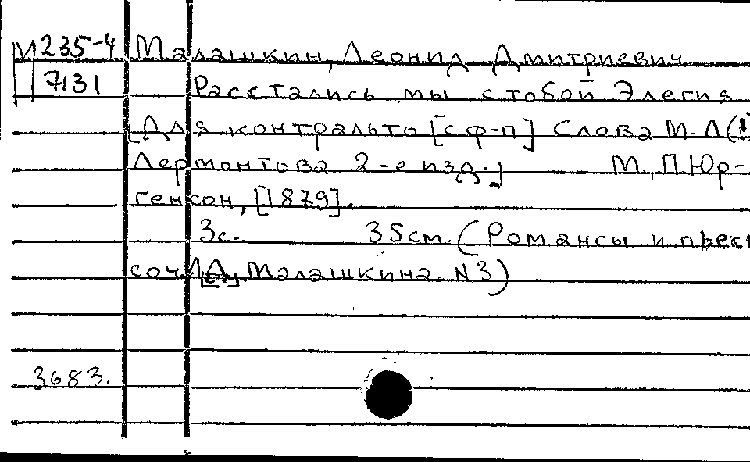 М 235-4 Малашкин, Леонид Дмитриевич
7131 Расстались мы с тобой Элегия
[Для контральто [с ф-п] Слова М. Л(!)
Лермонтова 2-е изд.] М., П. Юр-
генсон, [1879].
3с. 35см. (Романсы и песн
соч. Л[Д] Малашкина. N 3)
3683.